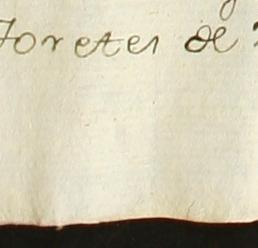 foretes de